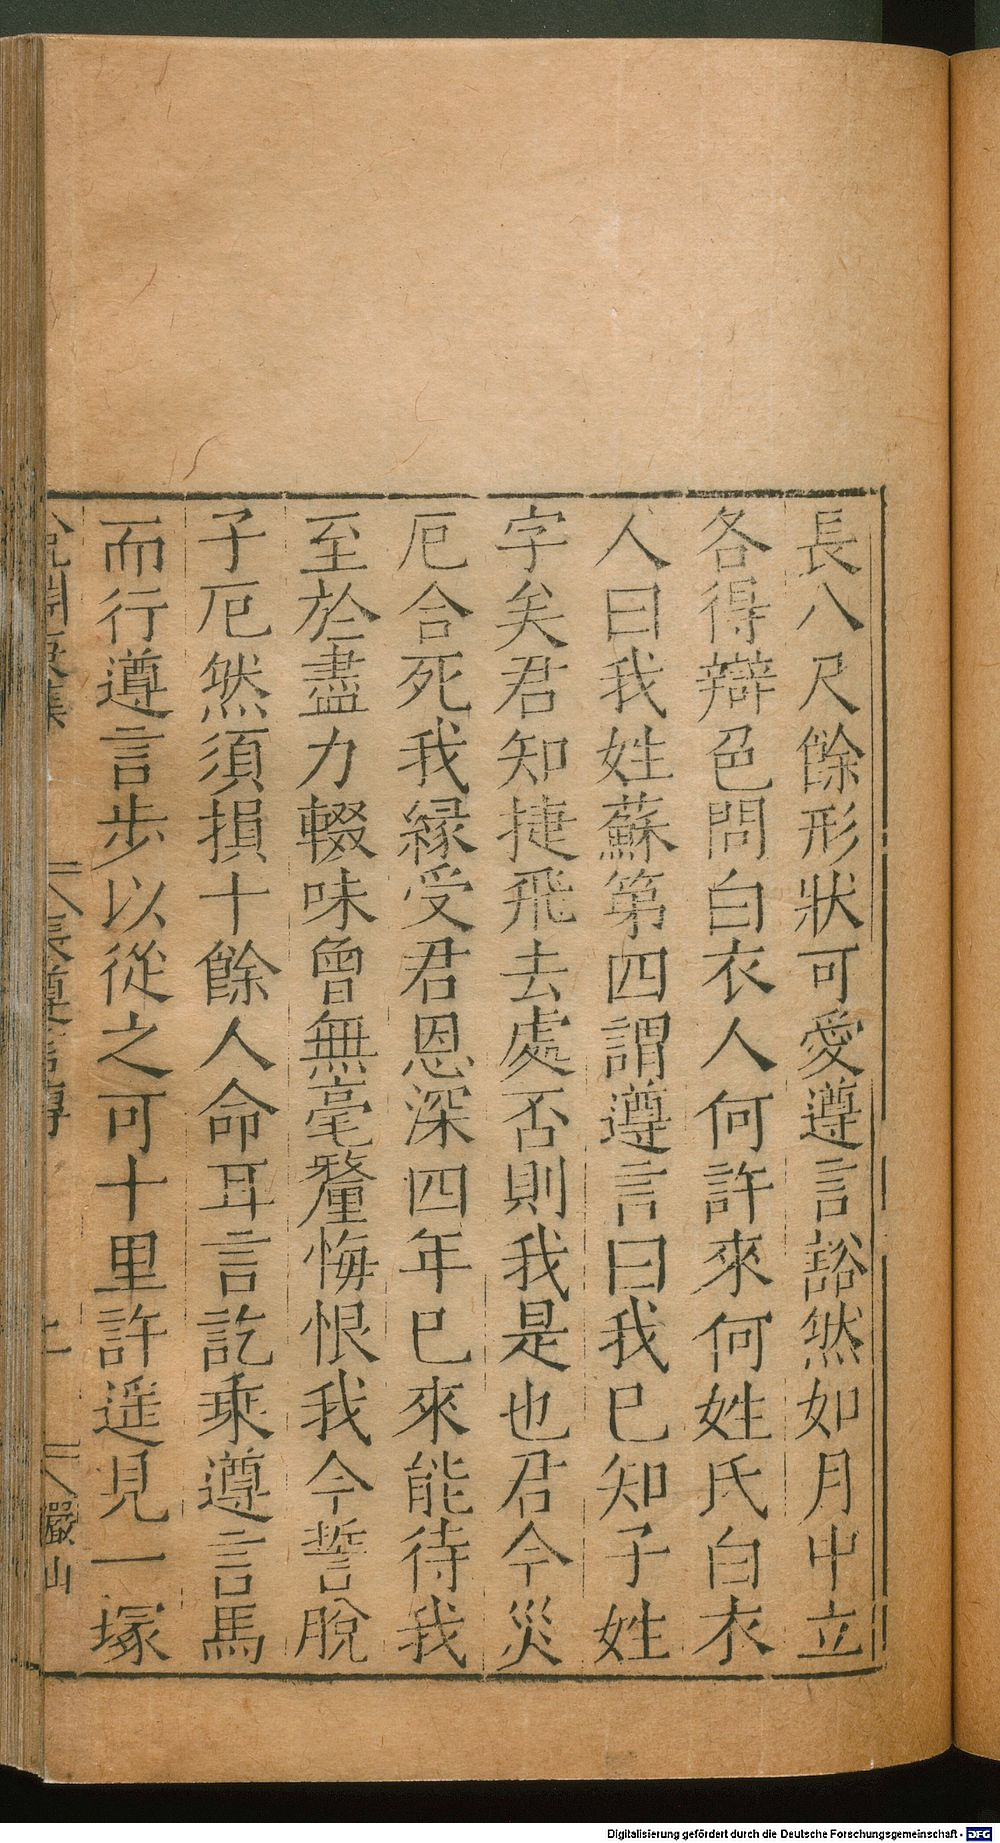 長八尺餘形狀可愛遵言豁然如月中立
各得辯色問白衣人何許來何姓氏白衣
人曰我姓蘇第四謂遵言曰我已知子姓
字矣君知捷飛去處否則我是也君今災
厄合死我緣受君恩深四年已來能待我
至於盡力輟味曾無毫釐悔恨我今誓脫
子厄然須損十餘人命耳言訖乘遵言馬
而行遵言步以從之可十里許遥見一塚
張遵言傳
嚴山
Digitalisierung gefördert durch die Deutsche Forschungsgemeinschaft - DFG